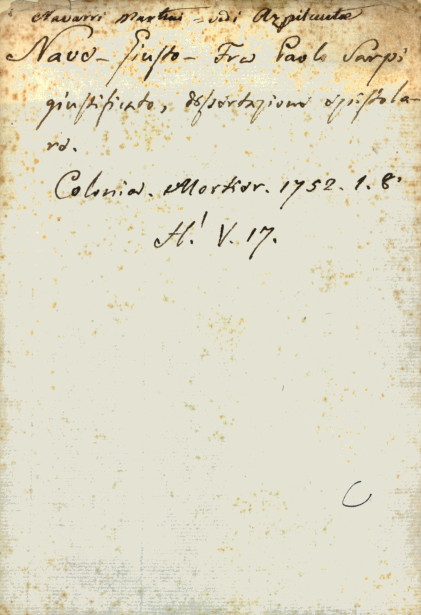 Navarri Martini = vedi Azpilcueta
Nave - Giusto - Fra Paolo Sarpi
giustificato, dissertazione epistola-
re.
Colonia. Mortier. 1752. 1. 8.
H! V. 17.